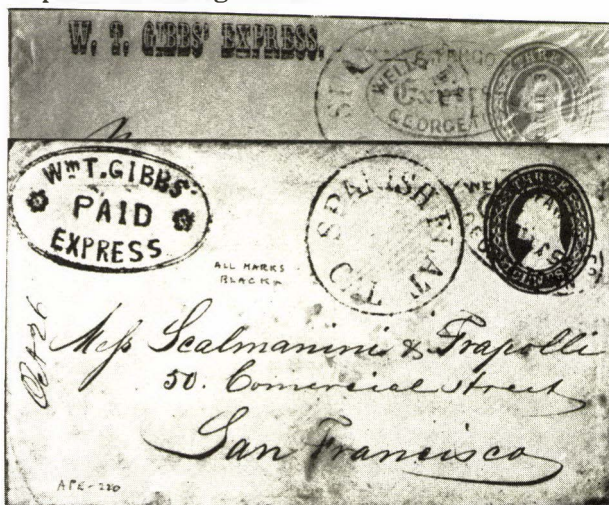 W. T. GIBBS' EXPRESS.
WELLS FARGO
GEORGET
THREE
Wm T. GIBBS'
PAID
EXPRESS
SPANISH FLAT
CAL
WELLS
THREE
ALL MARKS
BLACK
Oct 26
Mess Scalmanini & Frapolli
50. Comercial Street
San Francisco
APE-220